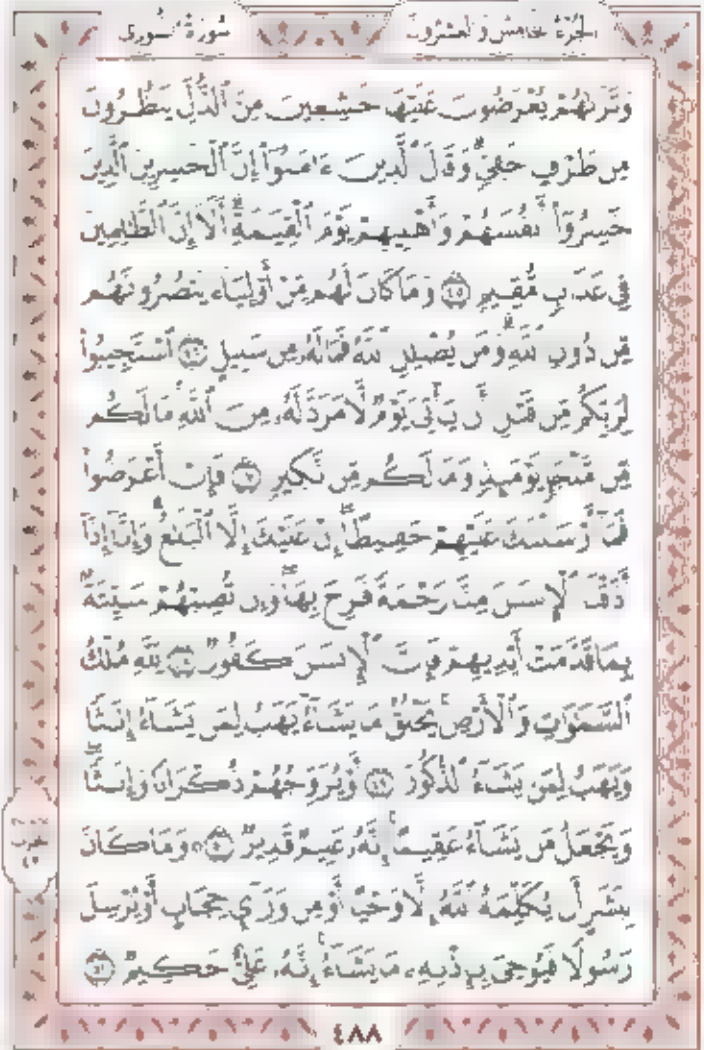 الجزء الخامس والعشرون
سورة الشورى
وَتَرَىٰهُمْ يُعْرَضُونَ عَلَيْهَا خَٰشِعِينَ مِنَ ٱلذُّلِّ يَنظُرُونَ
مِن طَرْفٍ خَفِىٍّ ۗ وَقَالَ ٱلَّذِينَ ءَامَنُوٓا۟ إِنَّ ٱلْخَٰسِرِينَ ٱلَّذِينَ
خَسِرُوٓا۟ أَنفُسَهُمْ وَأَهْلِيهِمْ يَوْمَ ٱلْقِيَٰمَةِ ۗ أَلَآ إِنَّ ٱلظَّٰلِمِينَ
فِى عَذَابٍ مُّقِيمٍ ٤٥ وَمَا كَانَ لَهُم مِّنْ أَوْلِيَآءَ يَنصُرُونَهُم
مِّن دُونِ ٱللَّهِ ۗ وَمَن يُضْلِلِ ٱللَّهُ فَمَا لَهُۥ مِن سَبِيلٍ ٤٦ ٱسْتَجِيبُوا۟
لِرَبِّكُم مِّن قَبْلِ أَن يَأْتِىَ يَوْمٌ لَّا مَرَدَّ لَهُۥ مِنَ ٱللَّهِ ۚ مَا لَكُم
مِّن مَّلْجَإٍ يَوْمَئِذٍ وَمَا لَكُم مِّن نَّكِيرٍ ٤٧ فَإِنْ أَعْرَضُوا۟
فَمَآ أَرْسَلْنَٰكَ عَلَيْهِمْ حَفِيظًا ۖ إِنْ عَلَيْكَ إِلَّا ٱلْبَلَٰغُ ۗ وَإِنَّآ إِذَآ
أَذَقْنَا ٱلْإِنسَٰنَ مِنَّا رَحْمَةً فَرِحَ بِهَا ۖ وَإِن تُصِبْهُمْ سَيِّئَةٌۢ
بِمَا قَدَّمَتْ أَيْدِيهِمْ فَإِنَّ ٱلْإِنسَٰنَ كَفُورٌ ٤٨ لِّلَّهِ مُلْكُ
ٱلسَّمَٰوَٰتِ وَٱلْأَرْضِ ۚ يَخْلُقُ مَا يَشَآءُ ۚ يَهَبُ لِمَن يَشَآءُ إِنَٰثًا
وَيَهَبُ لِمَن يَشَآءُ ٱلذُّكُورَ ٤٩ أَوْ يُزَوِّجُهُمْ ذُكْرَانًا وَإِنَٰثًا ۖ
وَيَجْعَلُ مَن يَشَآءُ عَقِيمًا ۚ إِنَّهُۥ عَلِيمٌ قَدِيرٌ ٥٠ ۞ وَمَا كَانَ
لِبَشَرٍ أَن يُكَلِّمَهُ ٱللَّهُ إِلَّا وَحْيًا أَوْ مِن وَرَآئِ حِجَابٍ أَوْ يُرْسِلَ
رَسُولًا فَيُوحِىَ بِإِذْنِهِۦ مَا يَشَآءُ ۚ إِنَّهُۥ عَلِىٌّ حَكِيمٌ ٥١
٤٨٨